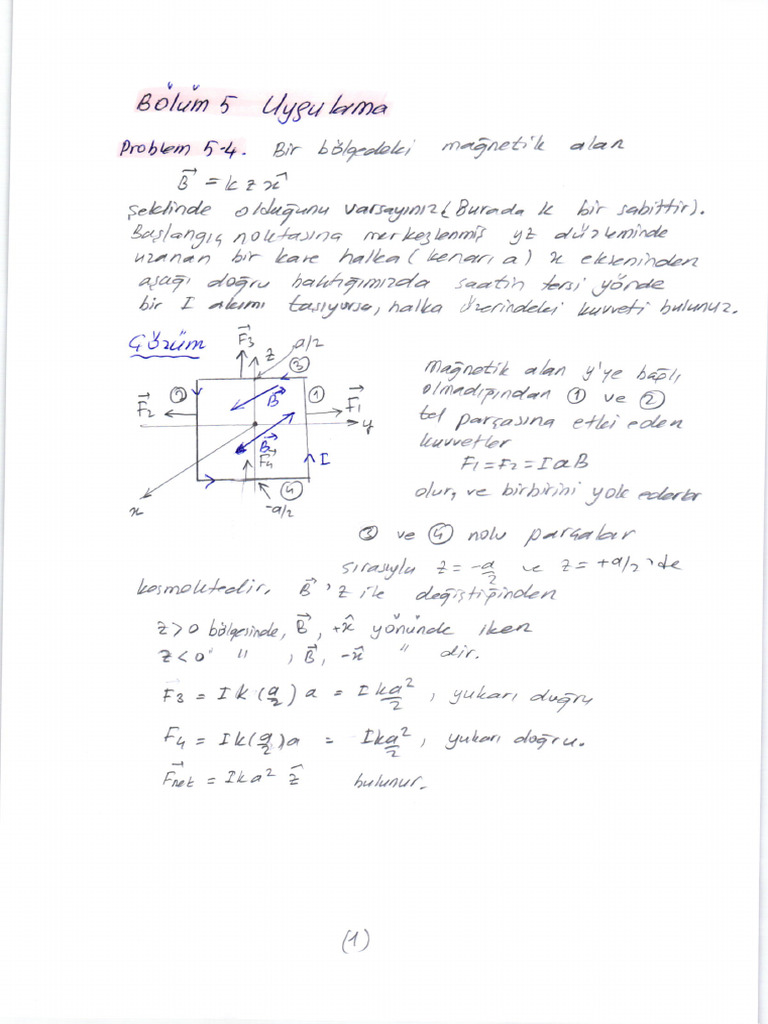 Bölüm 5 Uygulama
Problem 5-4. Bir bölgedeki mağnetik alan
B⃗ = k z x̂
şeklinde olduğunu varsayınız (Burada k bir sabittir).
Başlangıç noktasına merkezlenmiş yz düzleminde
uzanan bir kare halka (kenarı a) x ekseninden
aşağı doğru baktığımızda saatin tersi yönde
bir I akımı taşıyorsa, halka üzerindeki kuvveti bulunuz.
Çözüm
F⃗3 z a/2
③
② ①
B⃗
F⃗2 F⃗1
y
B⃗
F⃗4 I
④
x -a/2
Mağnetik alan y'ye bağlı
olmadığından ① ve ②
tel parçasına etki eden
kuvvetler
F1 = F2 = I a B
olur, ve birbirini yok ederler
③ ve ④ nolu parçalar
sırasıyla z = -a/2 ve z = +a/2 'de
B⃗, z ile değiştiğinden
z>0 bölgesinde, B⃗, +x̂ yönünde iken
z<0 " " , B⃗, -x̂ " dir.
F⃗3 = I k (a/2) a = I k a²/2 , yukarı doğru
F4 = I k (a/2) a = I k a²/2 , yukarı doğru.
F⃗net = I k a² ẑ bulunur.
(1)